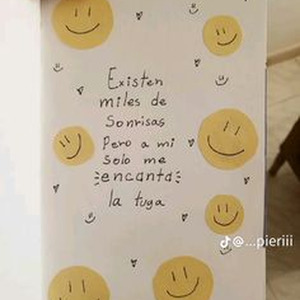 Existen
miles de
Sonrisas
Pero a mi
Solo me
encanta
la tuya
@...pieriii